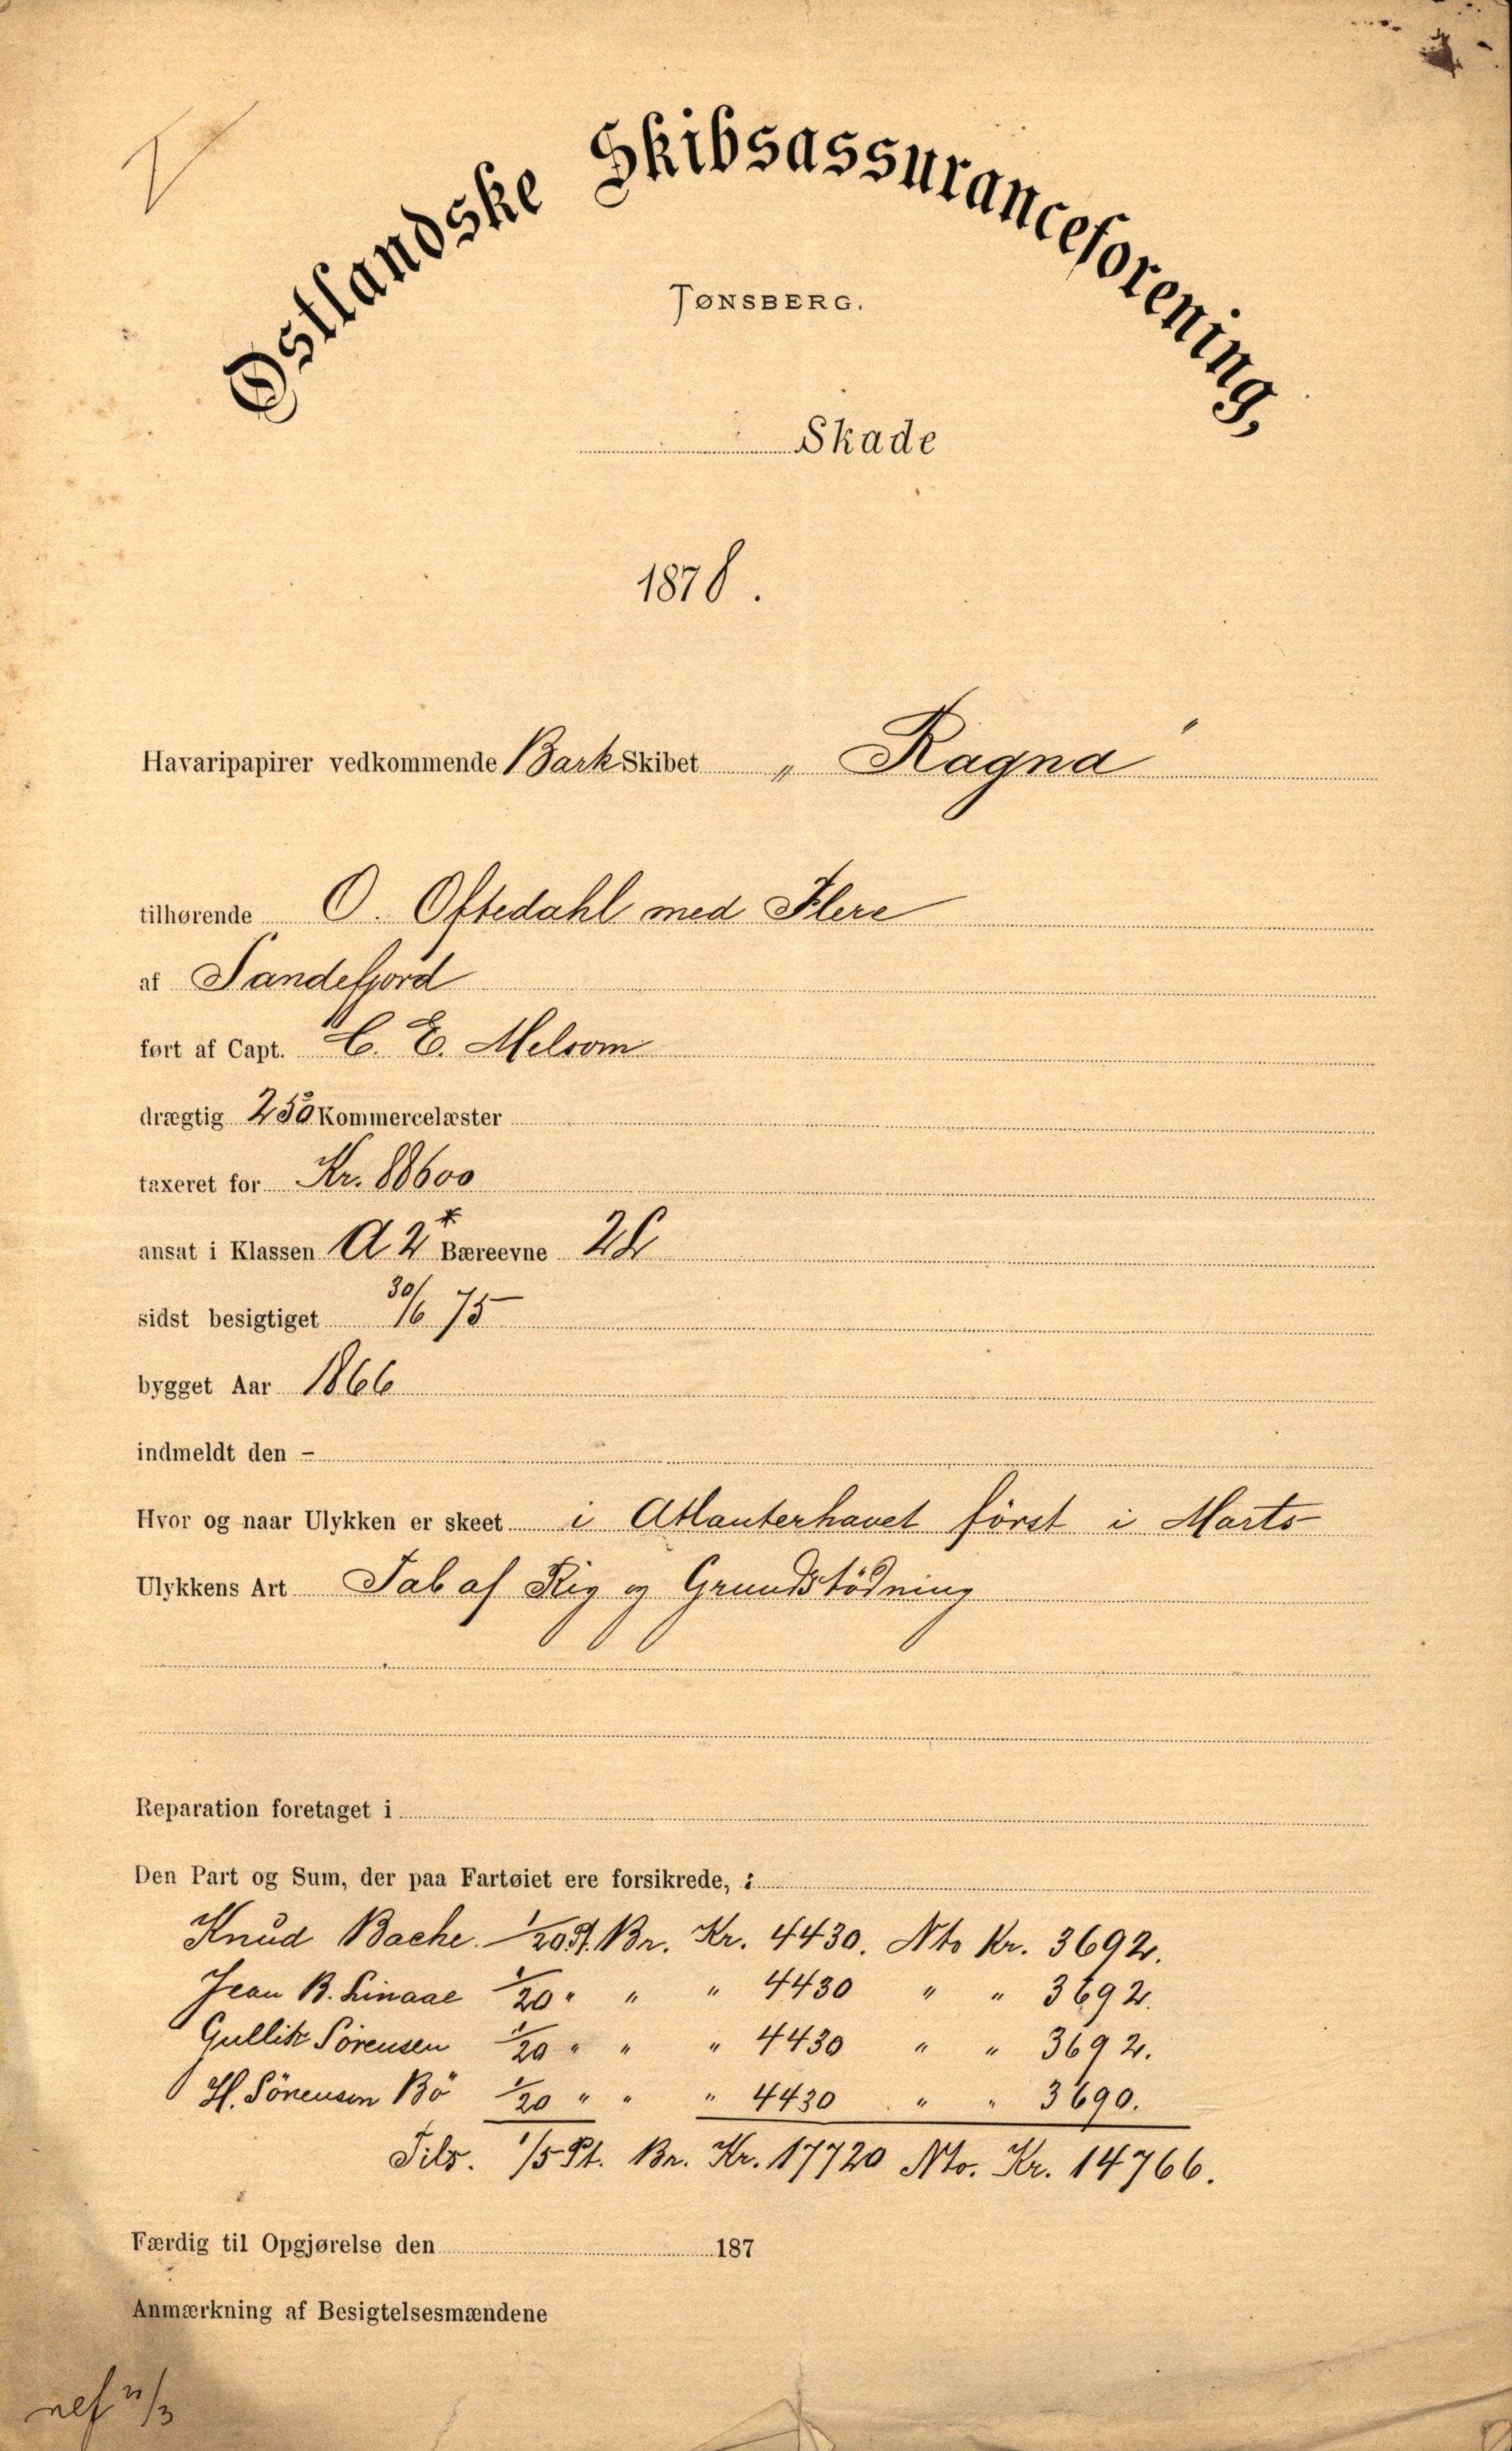 Østlandske Skibsassuranceforening,
TØNSBERG.
Skade
1878.
Havaripapirer vedkommende Bark Skibet „Ragna"
tilhørende O. Oftedahl med Flere
af Sandefjord
ført af Capt. C. E. Melsom
drægtig 250 Kommercelæster
taxeret for Kr. 88600
ansat i Klassen A 2* Bæreevne 2
sidst besigtiget 30/6 75
bygget Aar 1866
indmeldt den -
Hvor og naar Ulykken er skeet i Atlanterhavet først i Marts
Ulykkens Art Tab af Rig og Grundstødning
Reparation foretaget i
Den Part og Sum, der paa Fartøiet ere forsikrede, :
Knud Bache. 1/20 Pt. Br. Kr. 4430. Nto Kr. 3692.
Jean B. Linaae 1/20 " " " 4430 " " 3692.
Gullik Sørensen 1/20 " " " 4430 " " 3692.
H. Sörensen Bö 1/20 " " " 4430 " " 3690.
Tils. 1/5 Pt. Br. Kr. 17720 Nto. Kr. 14766.
Færdig til Opgjørelse den 187
Anmærkning af Besigtelsesmændene